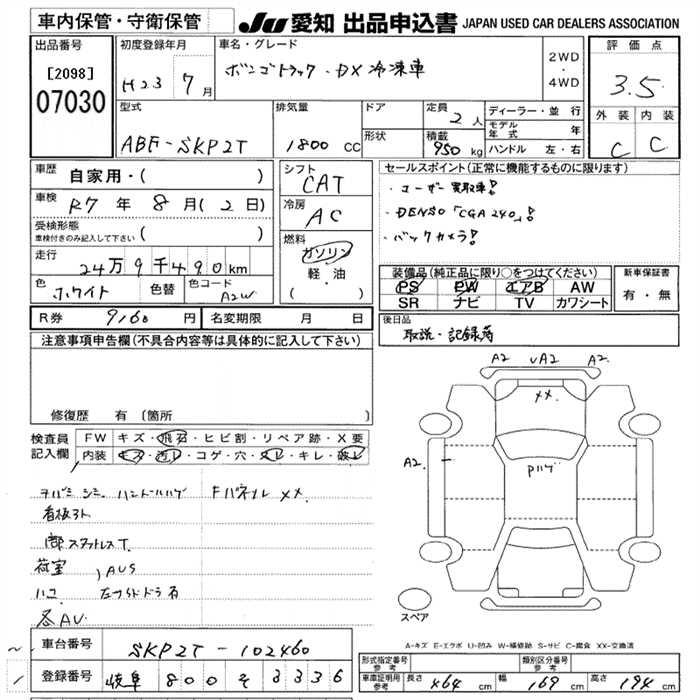 車内保管・守衛保管
JU 愛知 出品申込書 JAPAN USED CAR DEALERS ASSOCIATION
出品番号
[2098]
07030
初度登録年月
H23年 7月
車名・グレード
ボンゴトラック・DX 冷凍車
2WD
・
4WD
評価点
3.5
外装 内装
C C
型式
ABF-SKP2T
排気量
1800 CC
ドア
形状
定員 2人
積載 950 kg
ディーラー・並行
モデル年式 年
ハンドル 左・右
車歴 自家用・( )
車検 R7年 8月(2日)
受検形態
車検付きのみ記入して下さい ( )
走行
24万9千490km
色 ホワイト 色替 色コード A2W
シフト
CAT
冷房
AC
燃料
ガソリン
軽・油
( )
セールスポイント(正常に機能するものに限ります)
・ユーザー買取車!
・DENSO「CGA240」!
・バックカメラ!
装備品(純正品に限り○をつけてください)
PS PW エアB AW
SR ナビ TV カワシート
新車保証書
有・無
R券 9160円 名変期限 月 日
後日品
取説・記録簿
注意事項申告欄(不具合内容等は具体的に記入して下さい)
修復歴 有(箇所 )
検査員記入欄
FW キズ・飛石・ヒビ割・リペア跡・X要
内装 キズ・汚レ・コゲ・穴・スレ・キレ・破レ
シミ ハンドルハゲ Fパネル XX
看板跡
スタッドレスT.
荷室 AUS
ハコ
各AU
A2 UA2 A2
XX
A2
Pハゲ
スペア
A-キズ E-エクボ U-凹み W-補修跡 S-サビ C-腐食 XX-交換済
車台番号 SKP2T-102460
登録番号 岐阜 800 そ 3336
形式指定番号 参考
類別区分番号 参考
車庫証明用 参考 長さ 464 cm 幅 169 cm 高さ 194 cm